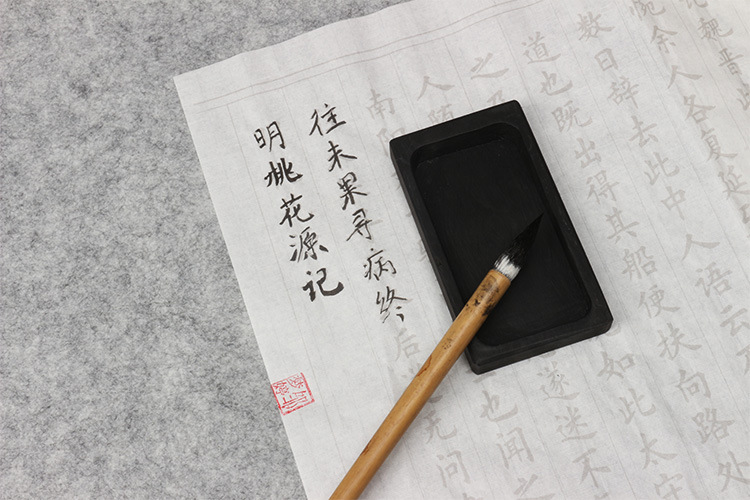 魏晋此
惋余人各复延
数日辞去此中人语云
道也既出得其船便扶向路处
之 如此太守
人随 遂迷不
南阳 也闻之
往未果寻病终后 无问
明桃花源记